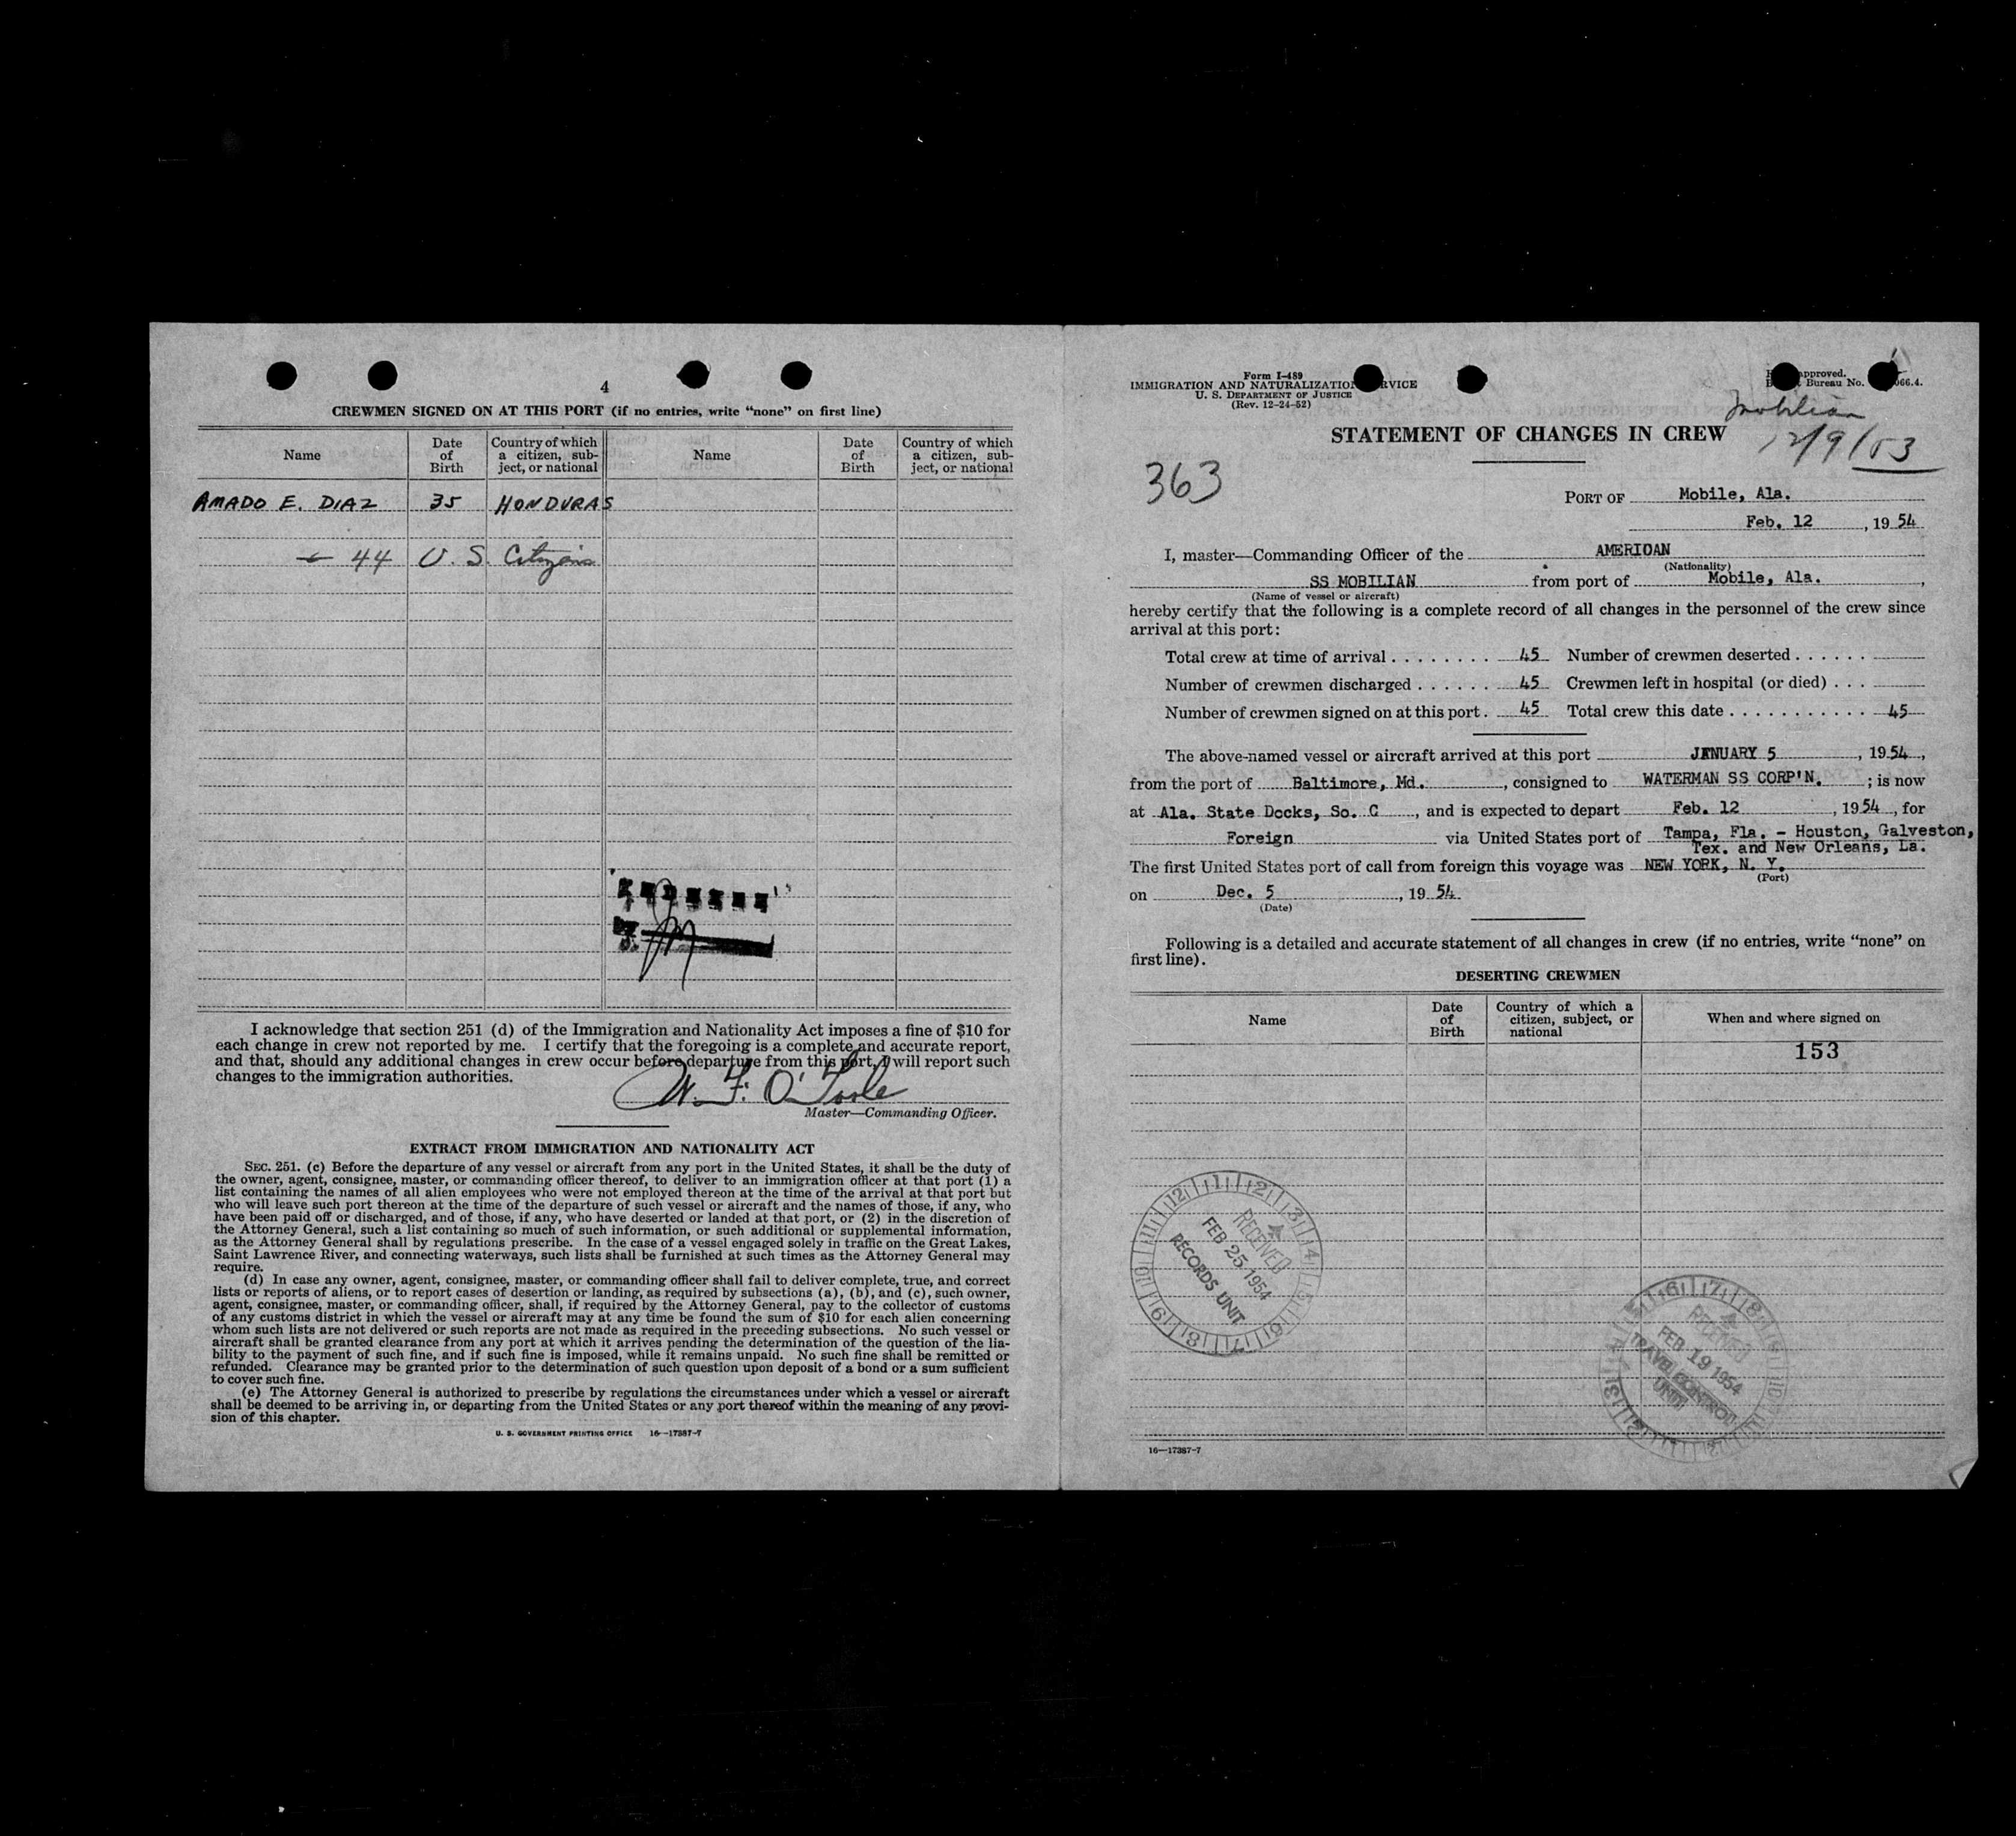 4
CREWMEN SIGNED ON AT THIS PORT (if no entries, write “none” on first line)
Name Date of Birth Country of which a citizen, sub-ject, or national Name Date of Birth Country of which a citizen, sub-ject, or national
AMADO E. DIAZ 35 HONDURAS
44 U. S. Citizens
I acknowledge that section 251 (d) of the Immigration and Nationality Act imposes a fine of $10 for
each change in crew not reported by me. I certify that the foregoing is a complete and accurate report,
and that, should any additional changes in crew occur before departure from this port, I will report such
changes to the immigration authorities.
W. F. O'Toole
Master—Commanding Officer.
EXTRACT FROM IMMIGRATION AND NATIONALITY ACT
SEC. 251. (c) Before the departure of any vessel or aircraft from any port in the United States, it shall be the duty of
the owner, agent, consignee, master, or commanding officer thereof, to deliver to an immigration officer at that port (1) a
list containing the names of all alien employees who were not employed thereon at the time of the arrival at that port but
who will leave such port thereon at the time of the departure of such vessel or aircraft and the names of those, if any, who
have been paid off or discharged, and of those, if any, who have deserted or landed at that port, or (2) in the discretion of
the Attorney General, such a list containing so much of such information, or such additional or supplemental information,
as the Attorney General shall by regulations prescribe. In the case of a vessel engaged solely in traffic on the Great Lakes,
Saint Lawrence River, and connecting waterways, such lists shall be furnished at such times as the Attorney General may
require.
(d) In case any owner, agent, consignee, master, or commanding officer shall fail to deliver complete, true, and correct
lists or reports of aliens, or to report cases of desertion or landing, as required by subsections (a), (b), and (c), such owner,
agent, consignee, master, or commanding officer, shall, if required by the Attorney General, pay to the collector of customs
of any customs district in which the vessel or aircraft may at any time be found the sum of $10 for each alien concerning
whom such lists are not delivered or such reports are not made as required in the preceding subsections. No such vessel or
aircraft shall be granted clearance from any port at which it arrives pending the determination of the question of the lia-
bility to the payment of such fine, and if such fine is imposed, while it remains unpaid. No such fine shall be remitted or
refunded. Clearance may be granted prior to the determination of such question upon deposit of a bond or a sum sufficient
to cover such fine.
(e) The Attorney General is authorized to prescribe by regulations the circumstances under which a vessel or aircraft
shall be deemed to be arriving in, or departing from the United States or any port thereof within the meaning of any provi-
sion of this chapter.
U. S. GOVERNMENT PRINTING OFFICE 16—17387-7
Form I-489
IMMIGRATION AND NATURALIZATION
U. S. DEPARTMENT OF JUSTICE
(Rev. 12-24-52)
Bureau No.
Mobilian
12/9/53
STATEMENT OF CHANGES IN CREW
363
PORT OF Mobile, Ala.
Feb. 12, 1954
I, master—Commanding Officer of the AMERICAN
(Nationality)
SS MOBILIAN from port of Mobile, Ala.,
(Name of vessel or aircraft)
hereby certify that the following is a complete record of all changes in the personnel of the crew since
arrival at this port:
Total crew at time of arrival . . . . . . . . 45 Number of crewmen deserted . . . . . .
Number of crewmen discharged . . . . . . 45 Crewmen left in hospital (or died) . . .
Number of crewmen signed on at this port . 45 Total crew this date . . . . . . . . . . . 45
The above-named vessel or aircraft arrived at this port JANUARY 5, 1954,
from the port of Baltimore, Md., consigned to WATERMAN SS CORP'N.; is now
at Ala. State Docks, So. C, and is expected to depart Feb. 12, 1954, for
Foreign via United States port of Tampa, Fla. - Houston, Galveston,
Tex. and New Orleans, La.
The first United States port of call from foreign this voyage was NEW YORK, N. Y.
(Port)
on Dec. 5, 1954
(Date)
Following is a detailed and accurate statement of all changes in crew (if no entries, write “none” on
first line).
DESERTING CREWMEN
Name Date of Birth Country of which a citizen, subject, or national When and where signed on
153
RECEIVED
FEB 25 1954
RECORDS UNIT
RECEIVED
FEB 19 1954
TRAVEL CONTROL
UNIT
16—17387-7